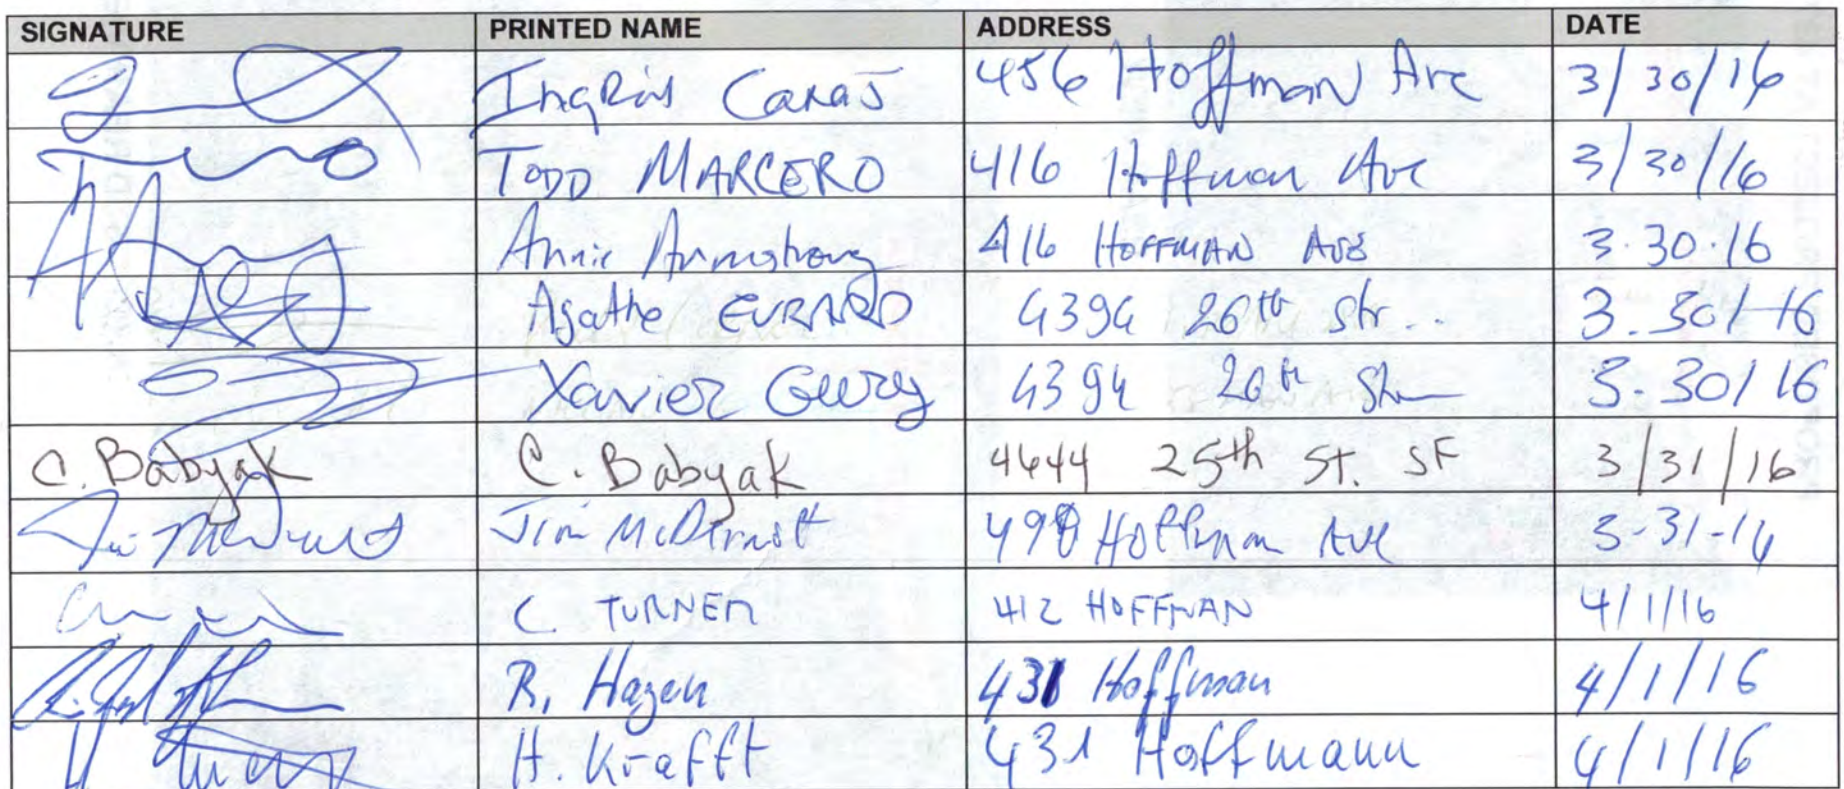 SIGNATURE PRINTED NAME ADDRESS DATE
Ingrid 456 Hoffman Ave 3/30/16
TODD MARCERO 416 Hoffman Ave 3/30/16
Annie Armstrong 416 HOFFMAN AVE 3.30.16
Agathe EVRARD 4394 26th Str.. 3.30/16
Xavier 4394 26th Str 3.30/16
C. Babyak C. Babyak 4644 25th St. SF 3/31/16
Jim McDermott Jim McDermott 498 Hoffman Ave 3-31-16
C TURNER 412 HOFFMAN 4/1/16
R. Hagen 431 Hoffman 4/1/16
H. Krafft 431 Hoffmann 4/1/16